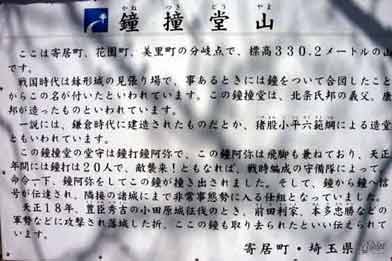 鐘撞堂山
かね つき どう やま
ここは寄居町、花園町、美里町の分岐点で、標高330.2メートルの山
です。
戦国時代は鉢形城の見張り場で、事あるときには鐘をついて合図したこと
からこの名が付いたといわれています。この鐘撞堂は、北条氏邦の義父、康
邦が造ったものといわれています。
一説には、鎌倉時代に建造されたものだとか、猪股小平六範綱による造営
ともいわれています。
この鐘撞堂の堂守は鐘打鐘阿弥で、この鐘阿弥は飛脚も兼ねており、天正
年間には鐘打は20人で、敵襲来!ともなれば、戦時編成の守備隊によって
の令一下、鐘阿弥をしてこの鐘が撞き出されました。そして、鐘から鐘へ
号が伝達され、隣接の諸城にまで非常事態勢に入る仕組となっていました。
天正18年、豊臣秀吉の小田原城征伐のとき、前田利家、本多忠勝などの
軍勢などに攻撃され落城した折、ここの鐘も取り去られたといい伝えられて
います。
寄居町・埼玉県